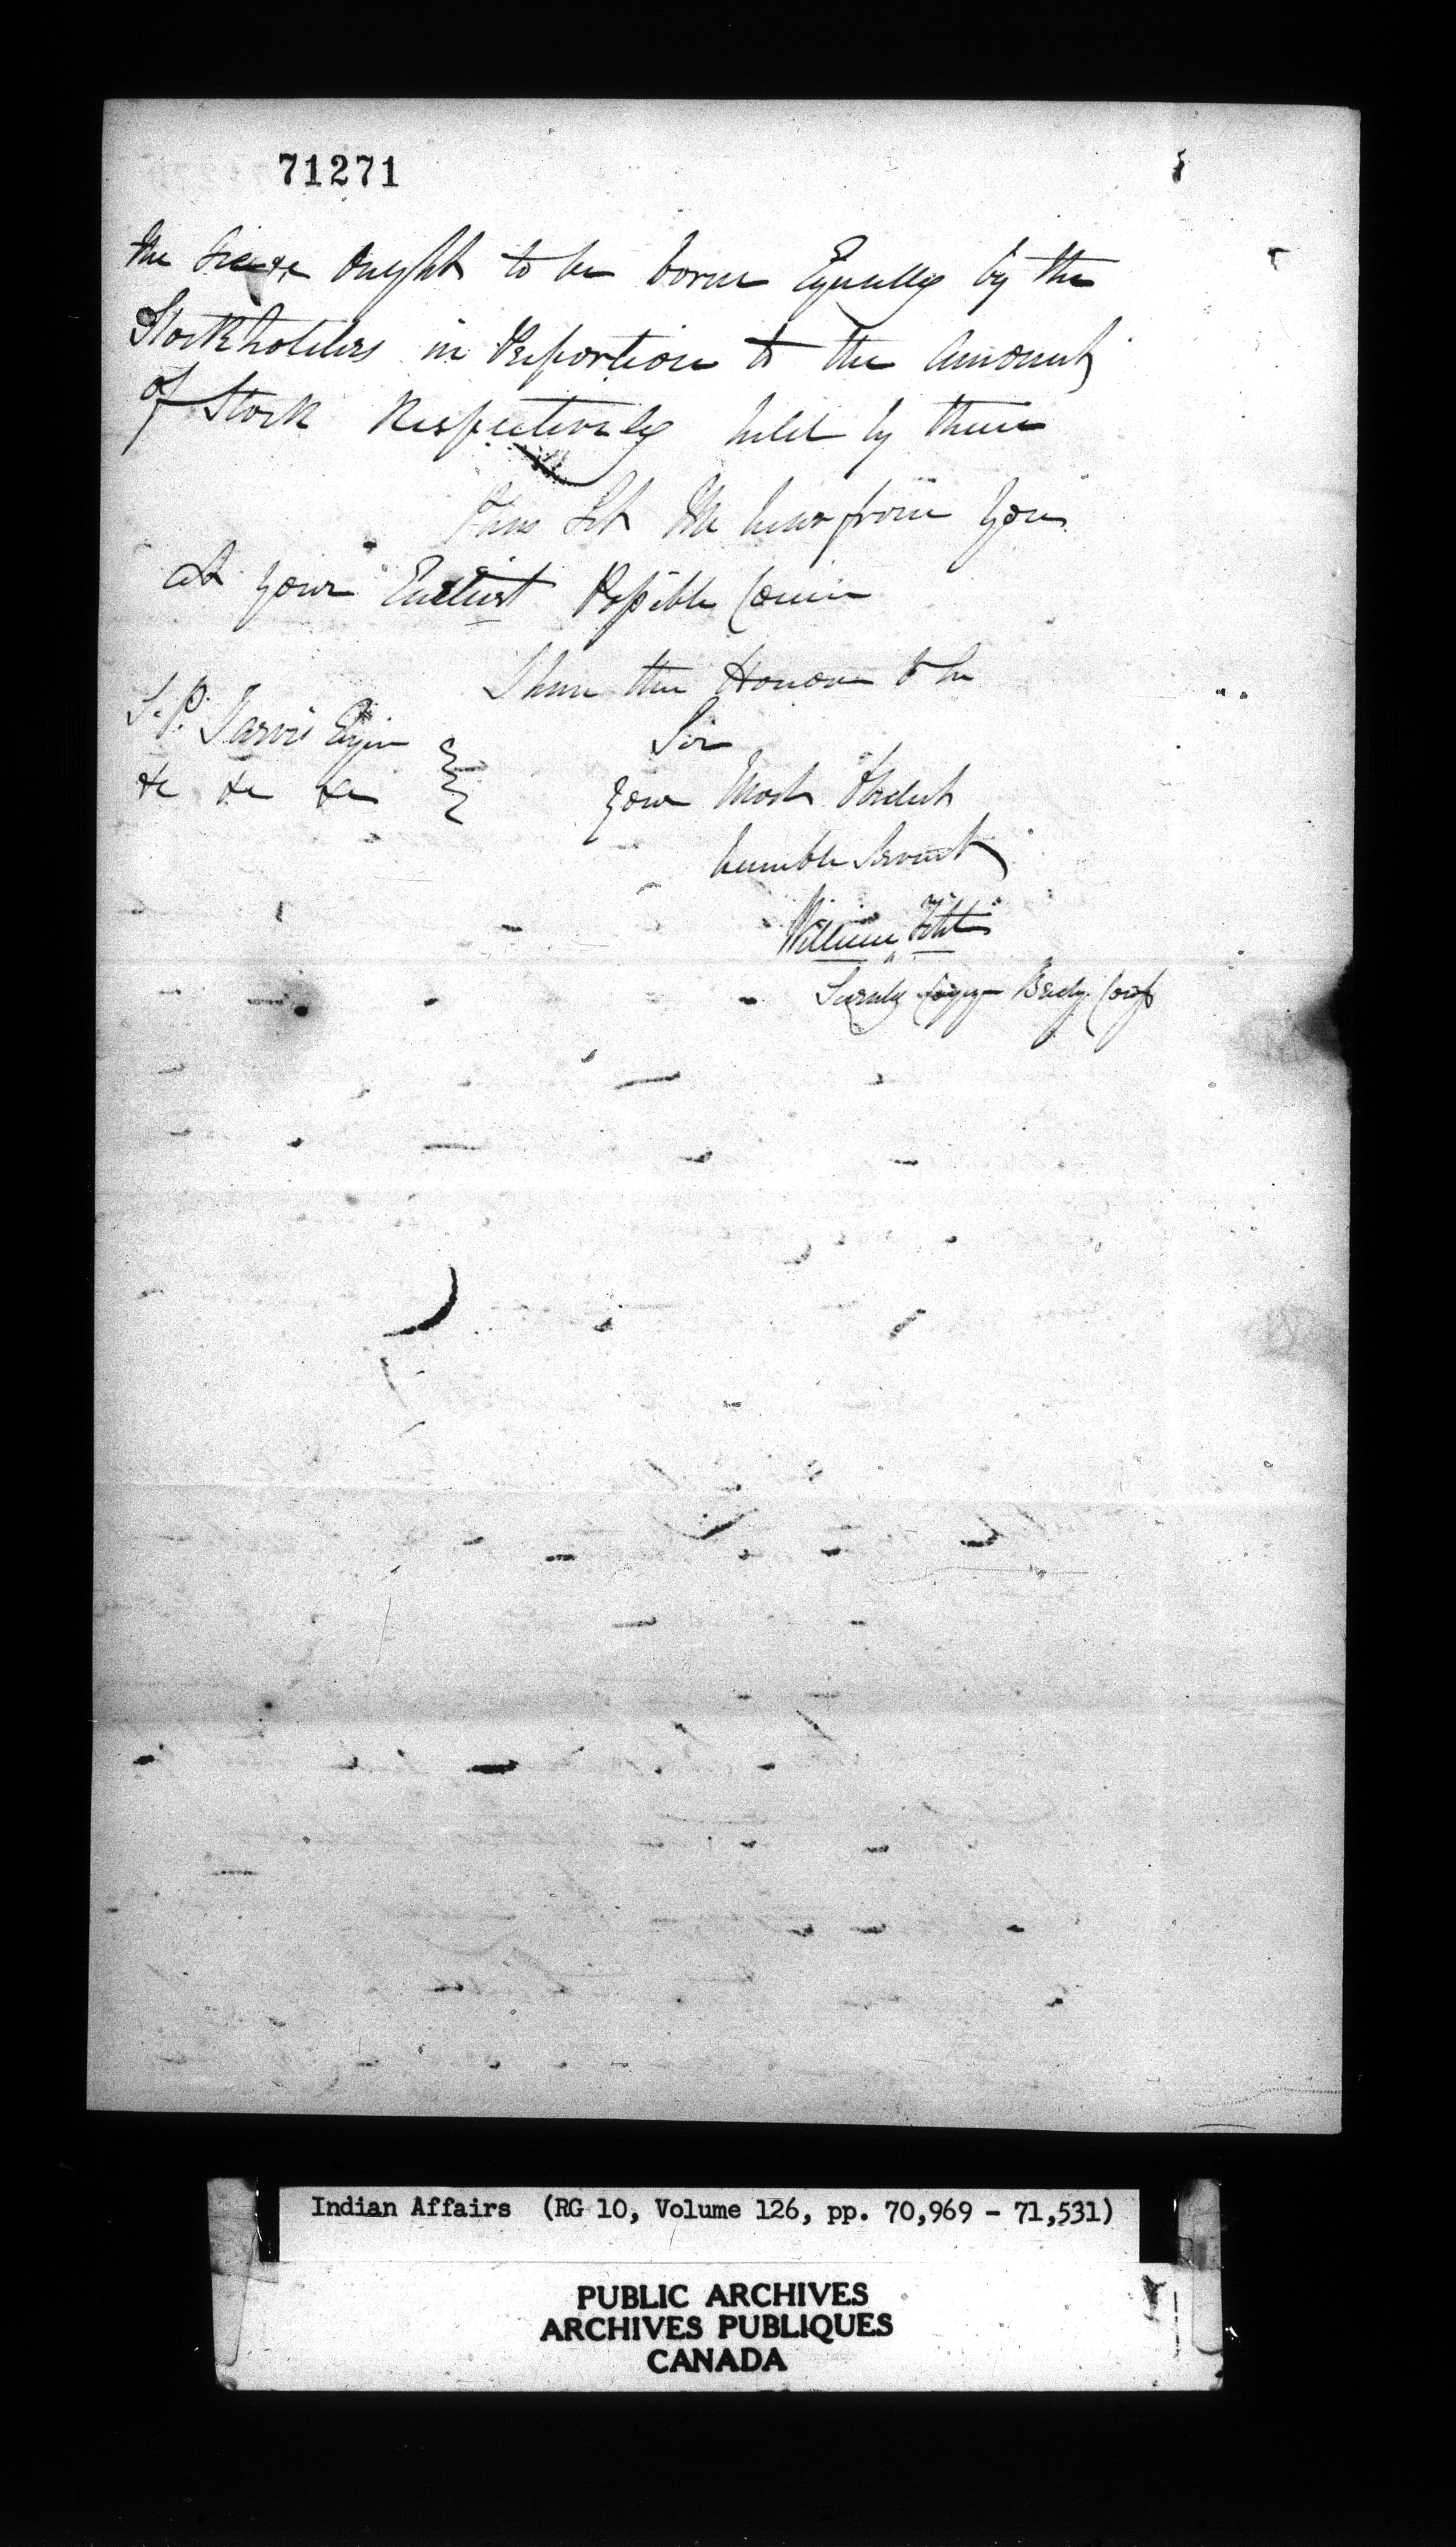 71271
the same ought to be borne Equally by the
Stockholders in Proportion to the amount
of Stock Respectively held by them
Let Me hear from you
at your Earliest Possible Conve
I have the Honor to be
S. P. Jarvis Esqr
Sir
&c &c &c
your Most Obedient
humble Servant
William
Bridge Comp
Indian Affairs (RG 10, Volume 126, pp. 70,969 - 71,531)
PUBLIC ARCHIVES
ARCHIVES PUBLIQUES
CANADA